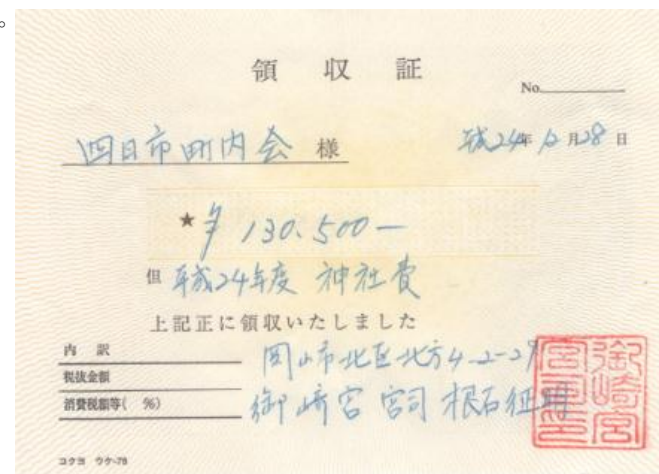 領収証
No.
四日市町内会 様
平成24年12月28日
★ ¥130.500—
但 平成24年度 神社費
上記正に領収いたしました
内訳
税抜金額
消費税額等( %)
岡山市北区北方4-2-29
御崎宮 宮司 根石征明
御崎宮宮司之印
コクヨ ウケ-78